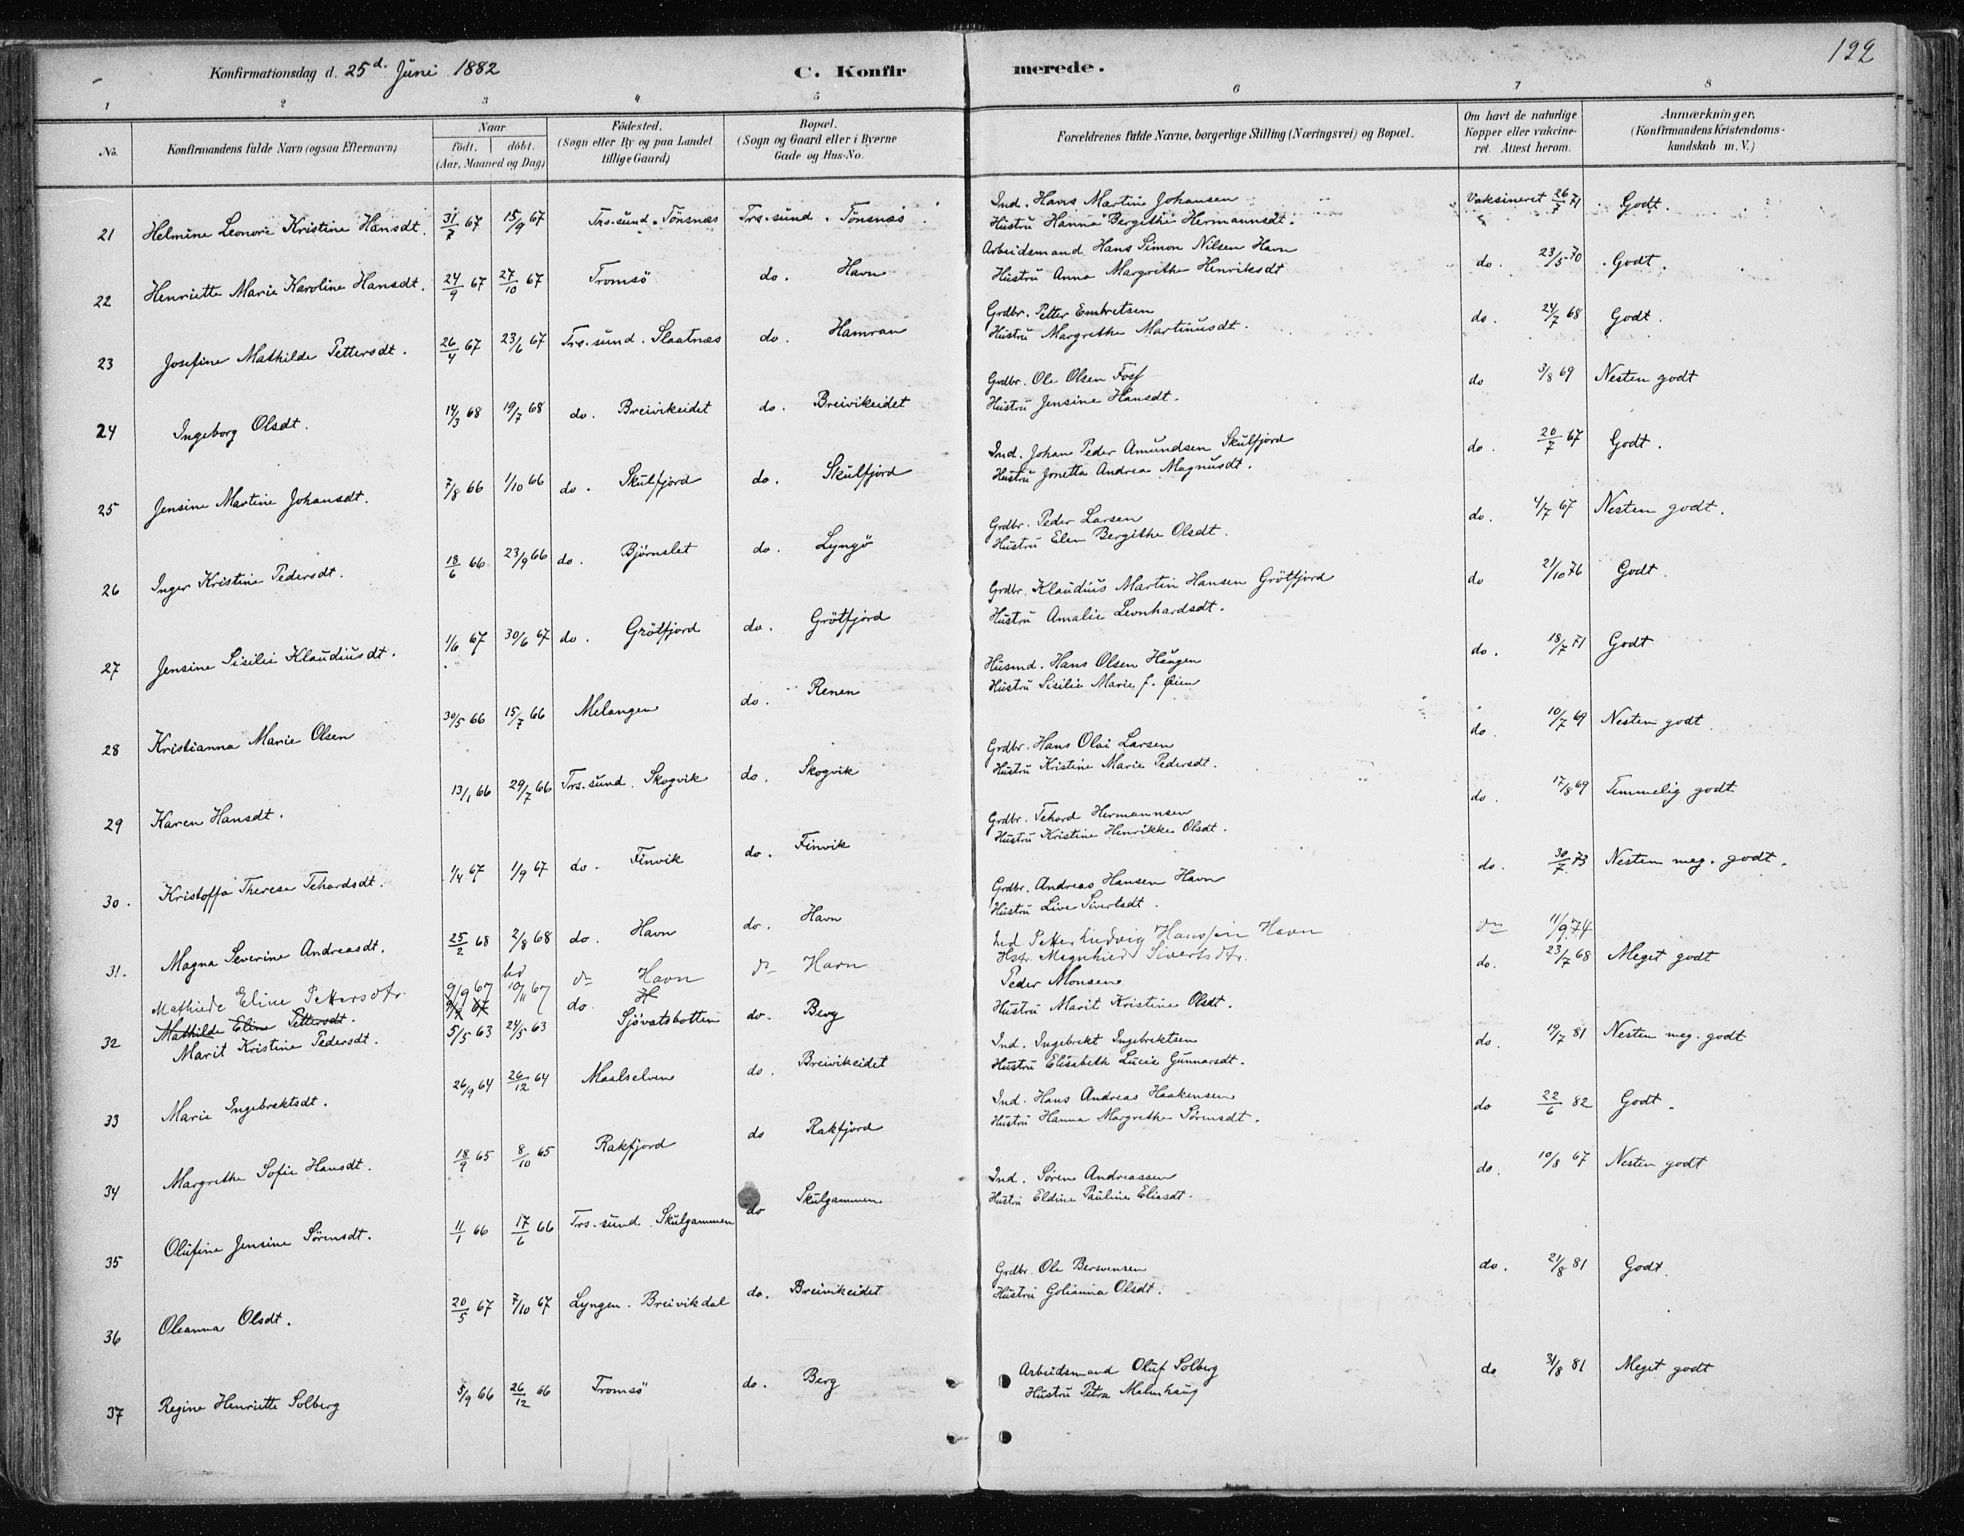 122
Konfirmationsdag d. 25d. Juni 1882
C. Konfirmerede.
1 2 3 4 5 6 7 8
No.
Konfirmandens fulde Navn (ogsaa Efternavn)
Naar
Födt. döbt.
(Aar, Maaned og Dag)
Födested.
(Sogn eller By og paa Landet
tillige Gaard)
Bopæl.
(Sogn og Gaard eller i Byerne
Gade og Hus-No.
Forældrenes fulde Navne, borgerlige Stilling (Næringsvei) og Bopæl.
Om havt de naturlige
Kopper eller vakcine-
ret. Attest herom.
Anmærkninger.
(Konfirmandens Kristendoms-
kundskab m. V.)
21 Helmine Leonore Kristine Hansdt. 31/7 67 15/9 67 Trs.sund. Tönsnæs Trs.sund. Tönsnæs Ind. Hans Martin Johansen Vaksineret 26/7 71 Godt.
Hustru Hanna Bergithe Hermannsdt.
22 Henriette Marie Karoline Hansdt. 24/9 67 27/10 67 Tromsö do. Havn Arbeidsmand Hans Simon Nilsen Havn do. 23/5 70 Godt.
Hustru Anna Margrithe Henriksdt
23 Josefine Mathilde Pettersdt. 26/4 67 23/6 67 Trs.sund. Slaatnæs do. Hamran Grdbr. Petter Embretsen do. 24/7 68 Godt.
Hustru Margrethe Martinusdt.
24 Ingeborg Olsdt. 14/3 68 19/7 68 do. Breivikeidet do. Breivikeidet Grdbr. Ole Olsen Foss do 3/8 69 Nesten godt
Hustru Jensine Hansdt.
25 Jensine Martine Johansdt. 7/8 66 1/10 66 do. Skulfjord do. Skulfjord Ind. Johan Peder Amundsen Skulfjord do 20/7 67 Godt.
Hustru Jonetta Andrea Magnusdt.
26 Inger Kristine Pedersdt. 18/6 66 23/9 66 do. Björnslet do. Lyngö Grdbr. Peder Larsen do. 4/7 67 Nesten godt.
Hustru Elen Bergithe Olsdt.
27 Jensine Sisilie Klaudiusdt. 1/6 67 30/6 67 do. Grötfjord do. Grötfjord Grdbr. Klaudius Martin Hansen Grötfjord do 21/10 76 Godt.
Hustru Amalie Leonhardsdt.
28 Kristianna Marie Olsen 30/5 66 15/7 66 Melangen do. Renen Husmd. Hans Olsen Haugen do. 18/7 71 Godt
Hustru Sisilie Marie f. Øien
29 Karen Hansdt. 13/1 66 29/7 66 Trs.sund. Skogvik do. Skogvik Grdbr. Hans Olai Larsen do. 10/7 69 Nesten godt
Hustru Kristine Marie Pedersdt.
30. Kristoffa Therese Tehardsdt. 1/4 67 1/9 67 do. Finvik do. Finvik Grdbr. Tehard Hermannsen do. 17/8 69 Temmelig godt
Hustru Kristine Henrikke Olsdt.
31. Magna Severine Andreasdt. 25/2 68 2/8 68 do. Havn do. Havn Grdbr. Andreas Hansen Havn do. 30/7 73 Nesten meg. godt.
Hustru Live Sivertsdt.
Mathilde Eline Pettersdtr. 9/9 67 10/11 67 do Havn do Havn Ind Petter Ludvig Hanssen Havn do 11/9 74
Hstr. Magnhild Sivertsdtr.
Mathilde Eline Pettersdt.
32 Marit Kristine Pedersdt. 5/5 63 24/5 63 do. Sjövatsbotten do. Berg Peder Monsen do. 23/7 68 Meget godt
Hustru Marit Kristine Olsdt.
33 Marie Ingebrektsdt. 26/9 64 26/12 64 Maalselven do. Breivikeidet Ind. Ingebrekt Ingebrektsen do. 19/7 81 Nesten meg. godt
Hustru Elisabeth Lucie Gunnarsdt.
34 Margrethe Sofie Hansdt. 18/9 65 8/10 65 Rakfjord do Rakfjord Ind. Hans Andreas Haakensen do 22/6 82 Godt.
Hustru Hanna Margrethe Sörensdt.
35 Olufine Jensine Sörensdt. 11/1 66 17/6 66 Trs.sund. Skulgammen do Skulgammen Ind. Sören Andreassen do. 10/8 67 Nesten godt
Hustru Eldine Pauline Eliasdt.
36 Oleanna Olsdt. 20/5 67 7/10 67 Lyngen. Breivikdal do. Breivikeidet Grdbr. Ole Berwensen do. 21/8 81 Godt.
Hustru Golianna Olsdt.
37 Regine Henriette Solberg 5/9 66 26/12 66 Tromsö do. Berg Arbeidsmand Oluf Solberg do 31/8 81 Meget godt
Hustru Petra Malmhaug